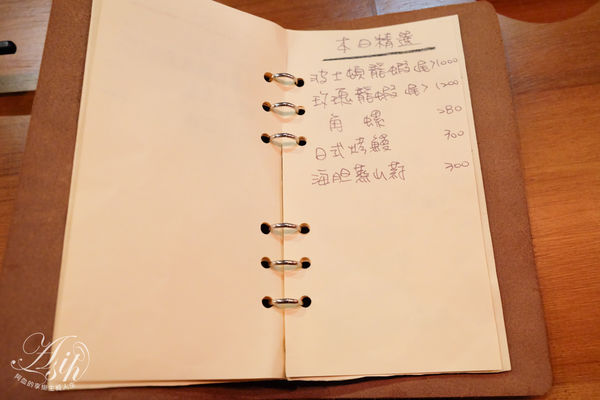 本日精選
波士頓龍蝦(尾) 1000
玫瑰龍蝦(尾) 1200
角螺 280
日式烤鰻 300
海胆蒸山葯 300
Asin